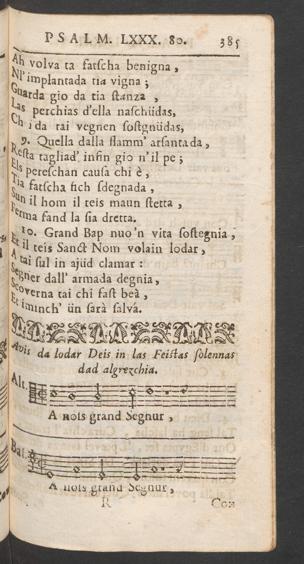 PSALM. LXXX. 80. 385
Ah volva ta fatscha benigna,
Nl' implantada tia vigna;
Guarda gio da tia stanza,
Las perchias d'ella naschüdas,
Ch i da tai vegnen sostgnüdas,
9. Quella dalla flamm' arsantada,
Resta tagliad' infin gio n'il pe;
Els pereschan causa chi è,
Tia fatscha fich sdegnada,
Sun il hom il teis maun stetta,
Ferma fand la sia dretta.
10. Grand Bap nuo'n vita sostegnia,
Et il teis Sanct Nom volain lodar,
A tai sul in ajüd clamar:
Segner dall' armada degnia,
Scoverna tai chi fast beà,
Et iminch' ün sarà salvà.
da lodar Deis in las Feistas solennas
dad algrezchia.
Alt.
A nois grand Segnur,
Bas.
A nois grand Segnur,
R Con